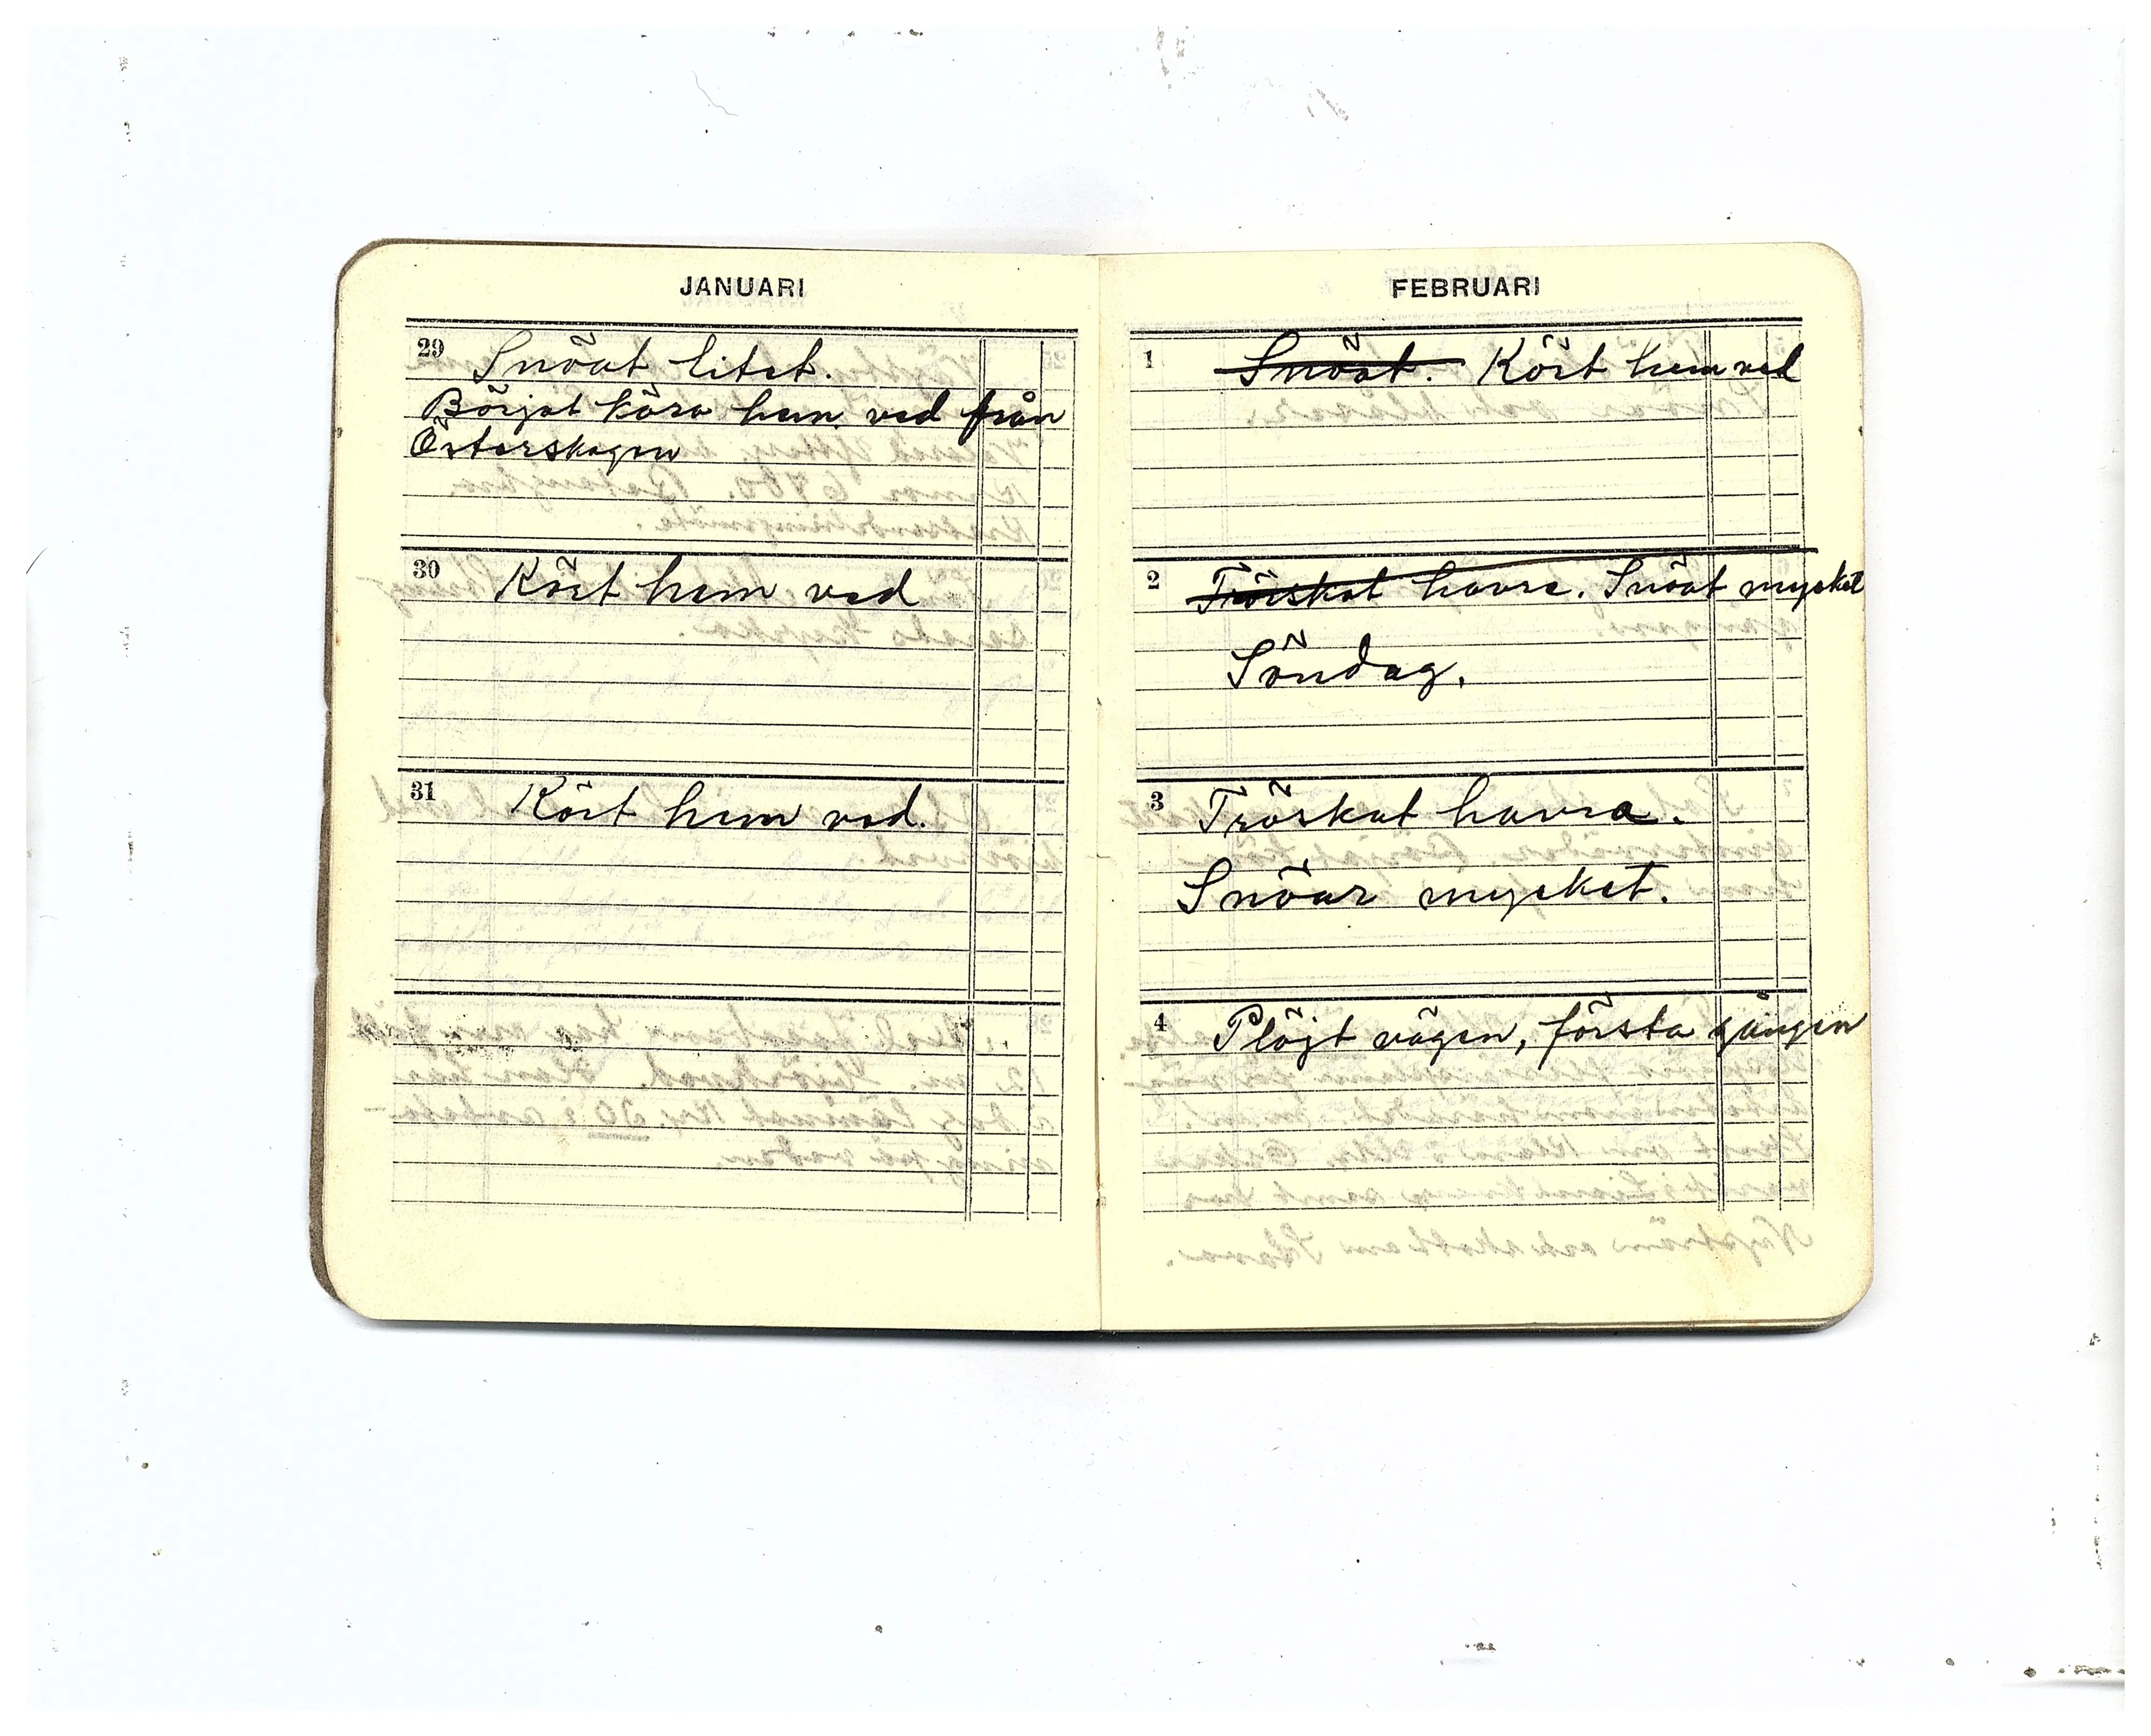 JANUARI
29 Snöat litet.
Börjat köra hem ved från
Österskogen
30 Kört hem ved
31 Kört hem ved.
FEBRUARI
1 Snöat. Kört hem ved
2 Tröskat havre. Snöat mycket
Söndag.
3 Tröskat havra.
Snöar mycket.
4 Plöjt vägen, första gången